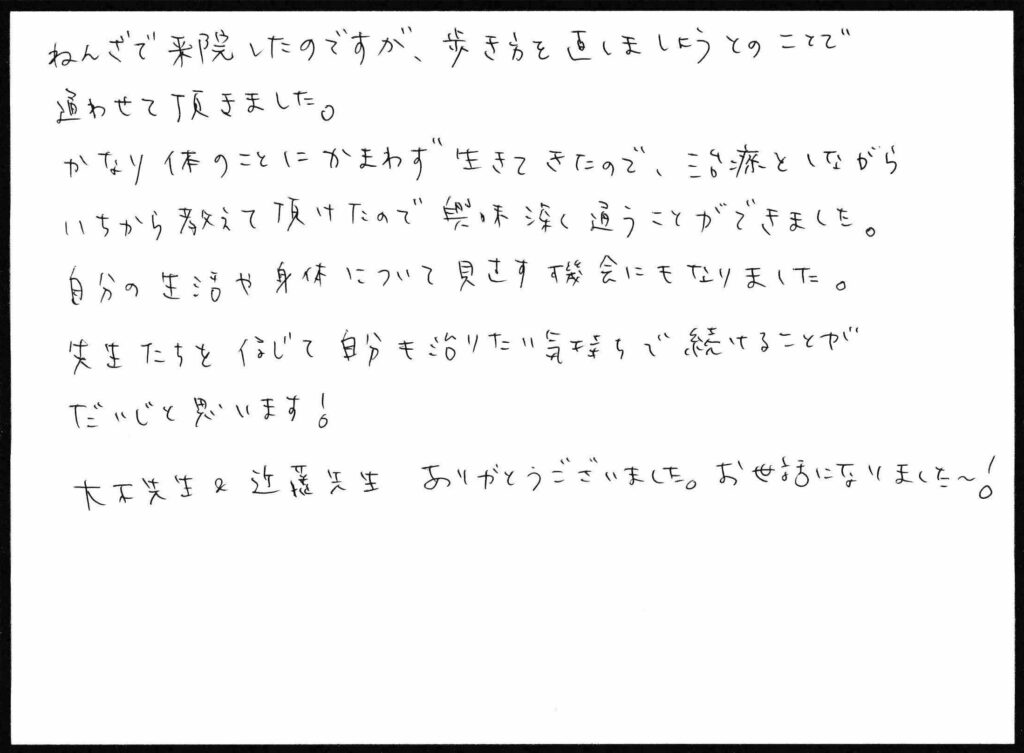 ねんざで来院したのですが、歩き方を直しましようとのことで
通わせて頂きました。
かなり体のことにかまわず生きてきたので、治療としながら
いちから教えて頂けたので興味深く通うことができました。
自分の生活や身体について見さす機会にもなりました。
先生たちを信じて自分も治りたい気持ちで続けることが
だいじと思います!
大木先生&近藤先生 ありがとうございました。お世話になりました〜!